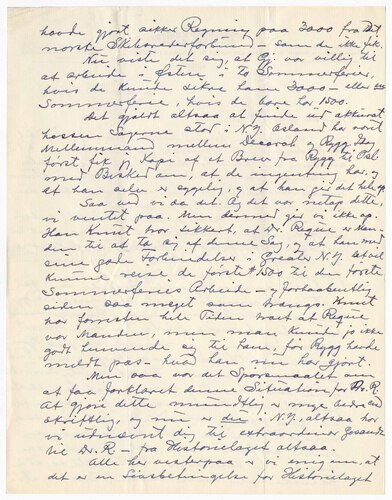 havde gjort sikker Regning paa 3000 fra Det
norske Skibsrederforbund – som de ikke fik.
Nu viste det sig, at Bj. var villig til
at arbeide i Østen i to Sommerferier,
hvis de kunde sikre ham 3000 – eller een
Sommerferie, hvis de bare har 1500.
Det gjaldt altsaa at finde ud akkurat
hvordan Sagerne stod i N.Y. Osland har været
Mellemmand mellem Decorah og Rygg. Idag
først fik jeg Kopi af et Brev fra Rygg til Osl.
med Besked om, at de ingenting har, og
at han selv er sygelig, og at han gir det hele op.
Saa ved vi da det. Og det var netop dette,
vi ventet paa. Men dermed gir vi ikke op.
Han Knut tror sikkert, at Dr. Regue er Man-
den til at ta sig af denne Sag, og at han med
sine gode Forbindelser i Greater N.Y. vil
kunne reise de første $1500 til den første
Sommerferies Arbeide – og forhaabentlig
siden saa meget som trængs. Knut
har forresten hele Tiden ment at Regue
var Manden, men man kunde jo ikke
godt henvende sig til ham, før Rygg havde
meldt pas – hvad han nu har gjort.
Men saa var det Spørsmaalet om
at faa forklaret denne Situation for Dr. R.
At gjøre dette mundtlig er meget bedre end
skriftlig, og nu er du i N.Y. altsaa har
vi udnævnt dig til extraordinær Gesandt
til Dr. R – fra Historielaget altsaa.
Alle her vesterpaa er vi enig om, at
det er en Livsbetingelse for Historielaget